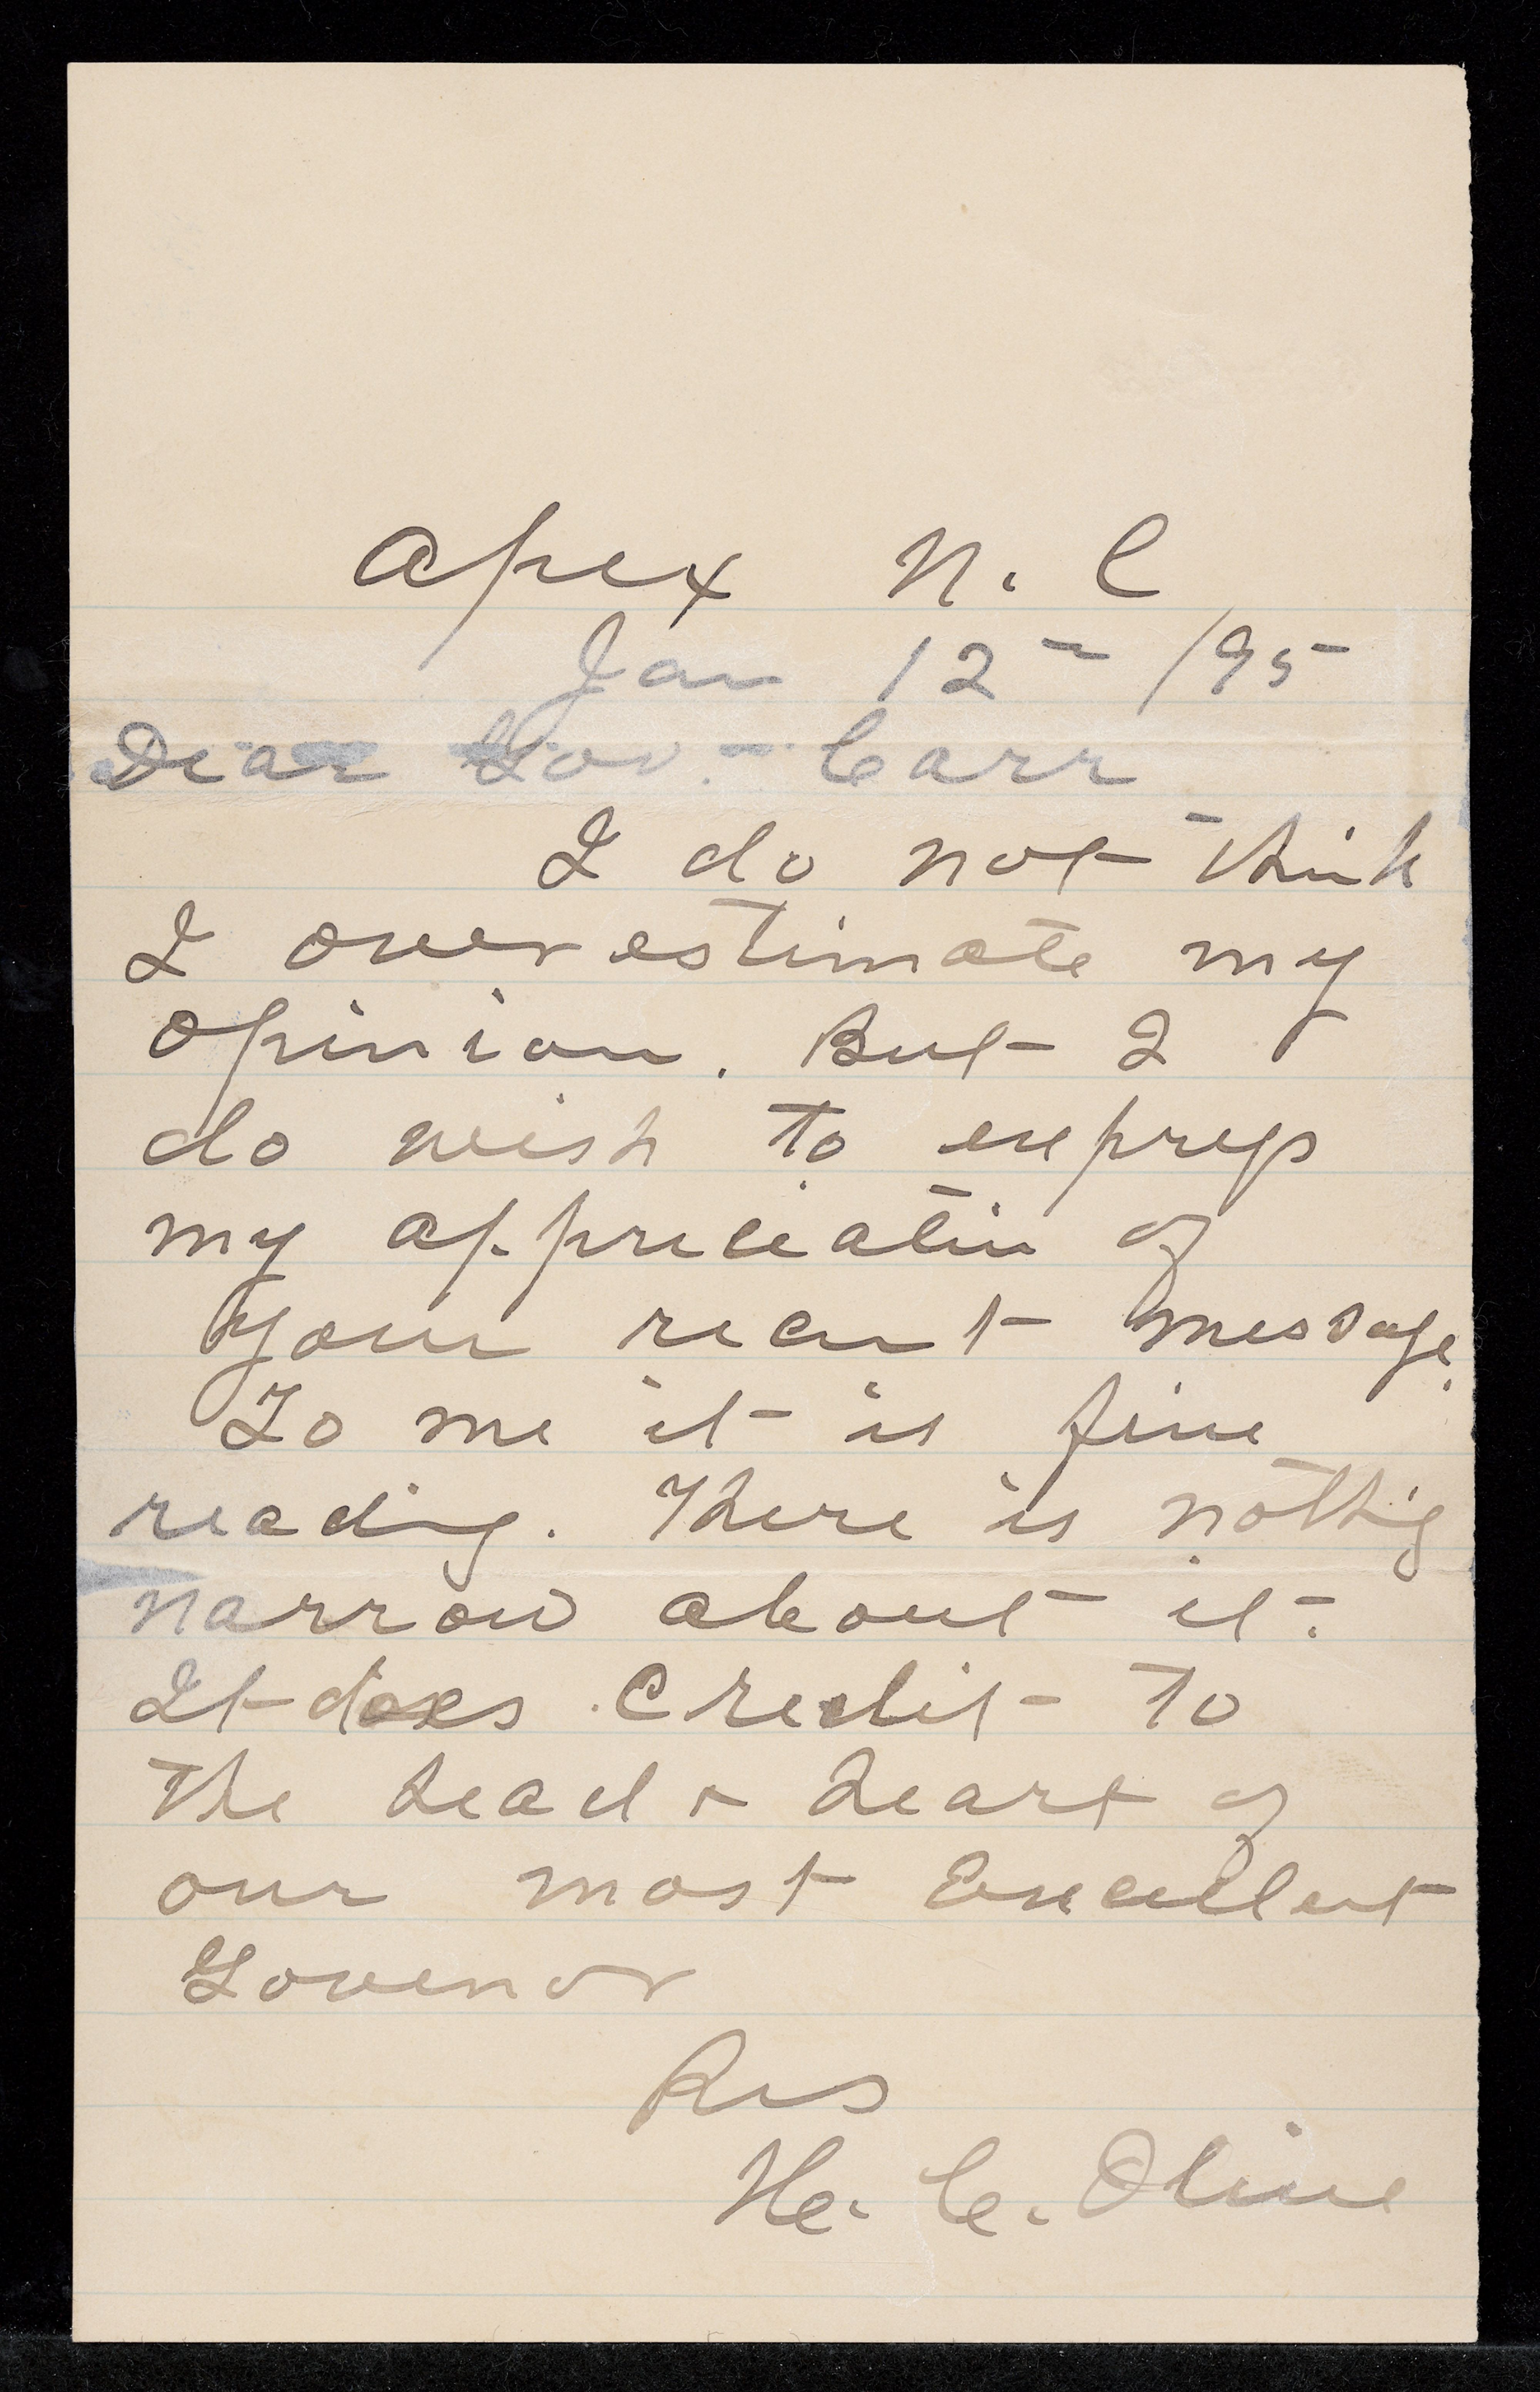 Apex N. C
Jan 12 - /95
Dear Gov. Carr
I do not think
I over estimate my
opinion. But I
do wish to express
my appreciation of
your recent message.
To me it is fine
reading. There is nothig
narrow about it.
It does Credit to
the head & heart of
our most Excellent
Govenor
Res
H. C. Olive